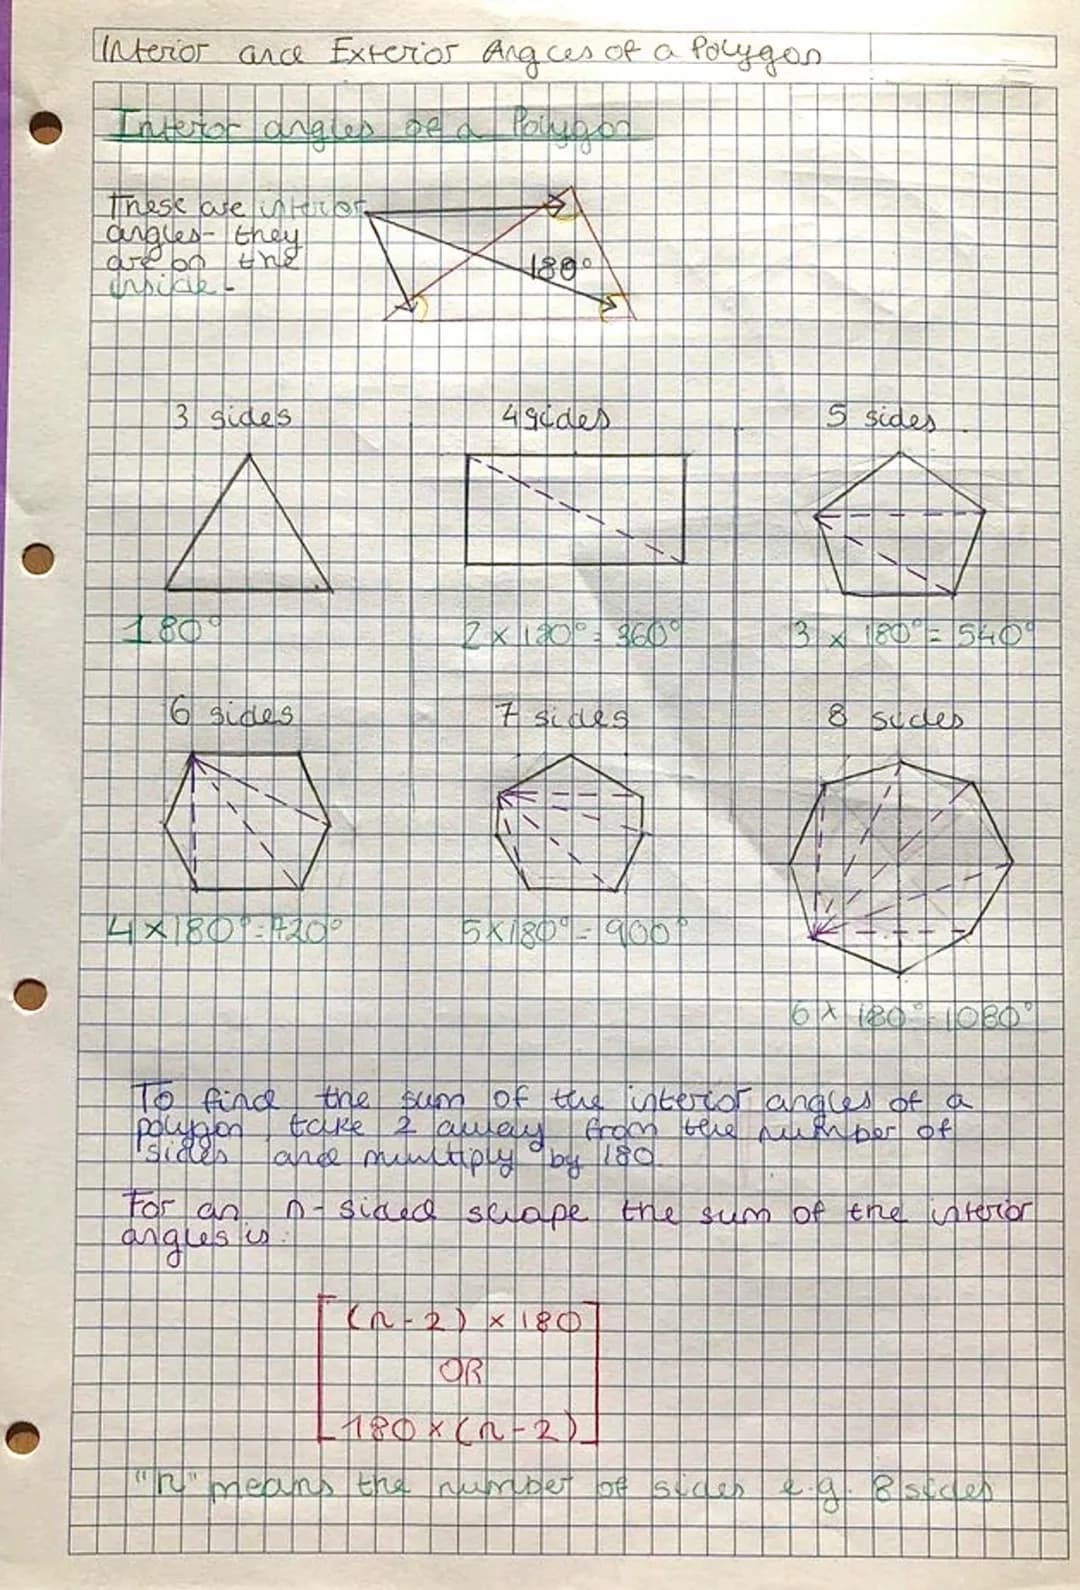 Interior and Exterior Angles of a Polygon
Interior angles of a Polygon
These are interior
angles - they
are on the
inside.
180°
3 sides 4 sides 5 sides
180° 2 x 180° = 360° 3 x 180° = 540°
6 sides 7 sides 8 sides
4 x 180° = 720° 5 x 180° = 900°
6 x 180° = 1080°
To find the sum of the interior angles of a
polygon take 2 away from the number of
sides and multiply by 180.
For an n-sided shape the sum of the interior
angles is:
(n - 2) x 180
OR
180 x (n - 2)
"n" means the number of sides e.g. 8 sides